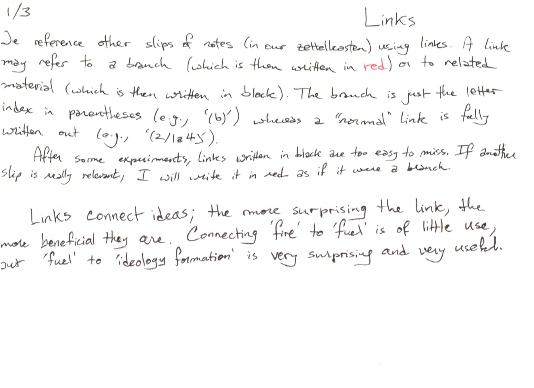 1/3
Links
We reference other slips of notes (in our zettelkasten) using links. A link
may refer to a branch (which is then written in red) or to related
material (which is then written in black). The branch is just the letter
index in parentheses (e.g., '(b)') whereas a "normal" link is fully
written out (e.g., '(2/1a45').
After some experiments, links written in black are too easy to miss. If another
slip is really relevant, I will write it in red as if it were a branch.
Links connect ideas; the more surprising the link, the
more beneficial they are. Connecting 'fire' to 'fuel' is of little use,
but 'fuel' to 'ideology formation' is very surprising and very useful.